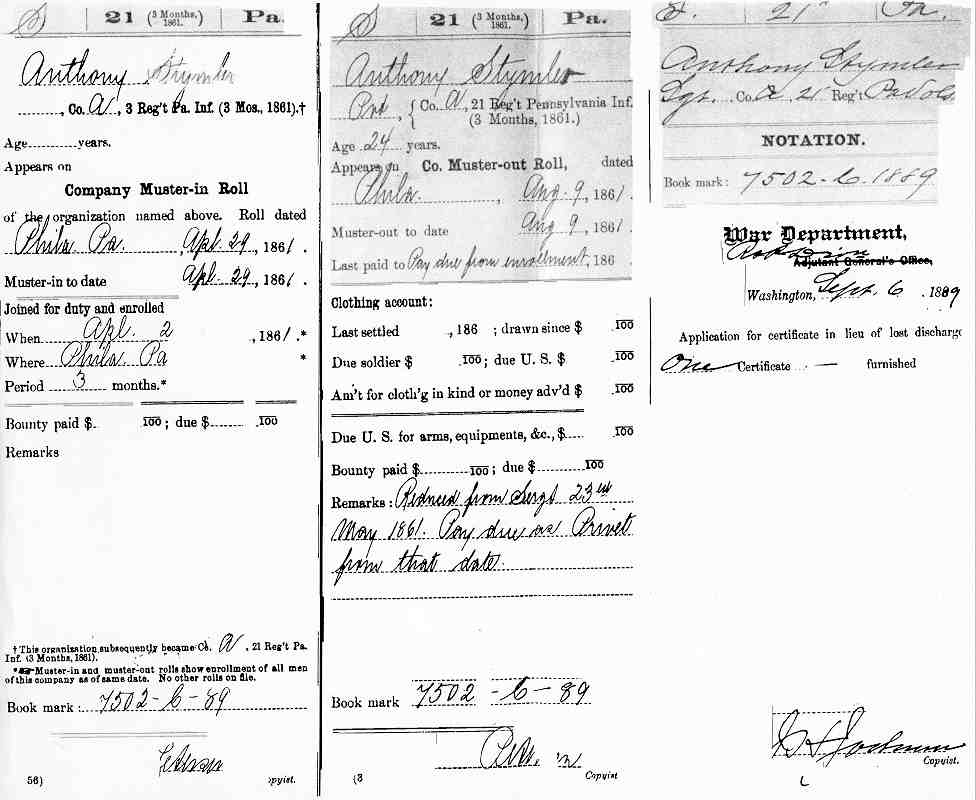 S | 21 (3 Months, 1861.) | Pa.
Anthony Stymler
, Co. A, 3 Reg't Pa. Inf. (3 Mos., 1861).†
Age years.
Appears on
Company Muster-in Roll
of the organization named above. Roll dated
Phila Pa. , Apl. 29, 1861.
Muster-in to date Apl. 29, 1861.
Joined for duty and enrolled
When Apl. 2 , 1861.*
Where Phila Pa *
Period 3 months.*
Bounty paid $ 100; due $ 100
Remarks
† This organization subsequently became Co. A, 21 Reg't Pa.
Inf. (3 Months, 1861).
* Muster-in and muster-out rolls show enrollment of all men
of this company as of same date. No other rolls on file.
Book mark: 7502-C-89
56) opyist.
S | 21 (3 Months, 1861.) | Pa.
Anthony Stymler
Pvt, { Co. A, 21 Reg't Pennsylvania Inf.
(3 Months, 1861.)
Age 24 years.
Appears on Co. Muster-out Roll, dated
Phila. , Aug. 9, 1861.
Muster-out to date Aug 9, 1861.
Last paid to Pay due from enrollment, 186 .
Clothing account:
Last settled , 186 ; drawn since $ 100
Due soldier $ 100; due U. S. $ 100
Am't for cloth'g in kind or money adv'd $ 100
Due U. S. for arms, equipments, &c., $ 100
Bounty paid $ 100; due $ 100
Remarks: Reduced from Sergt 23rd
May 1861. Pay due as Privet
from that date.
Book mark 7502 -C- 89
(3 Copyist
S. 21 Pa.
Anthony Stymler
Sgt. Co. A, 21 Reg't Pa Vols
NOTATION.
Book mark: 7502-C-1889
War Department,
Adjutant General's Office,
Washington, Sept. 6, 1889
Application for certificate in lieu of lost discharge
One Certificate — furnished
Copyist.